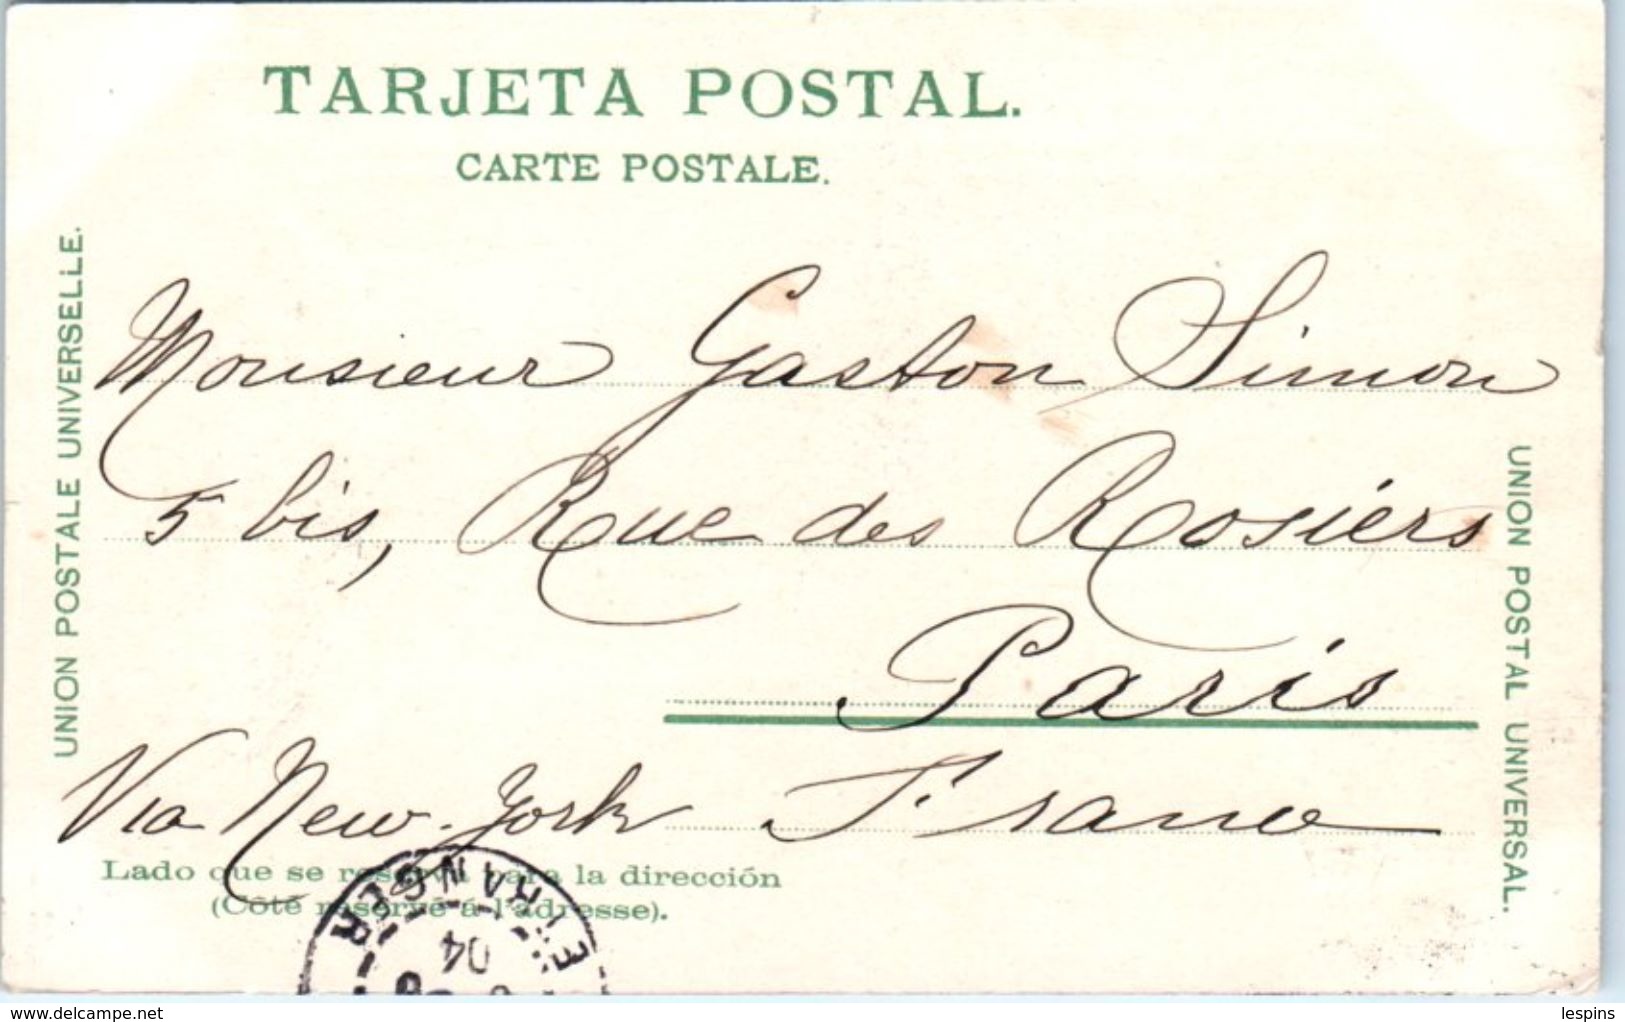 TARJETA POSTAL.
CARTE POSTALE.
UNION POSTALE UNIVERSELLE.
Monsieur Gaston Simon
5 bis, Rue des Rosiers
Paris
France
Via New-York
UNION POSTAL UNIVERSAL.
Lado que se reserva para la dirección
(Côté réservé á l'adresse).
ETRANGER
04
delcampe.net
lespins